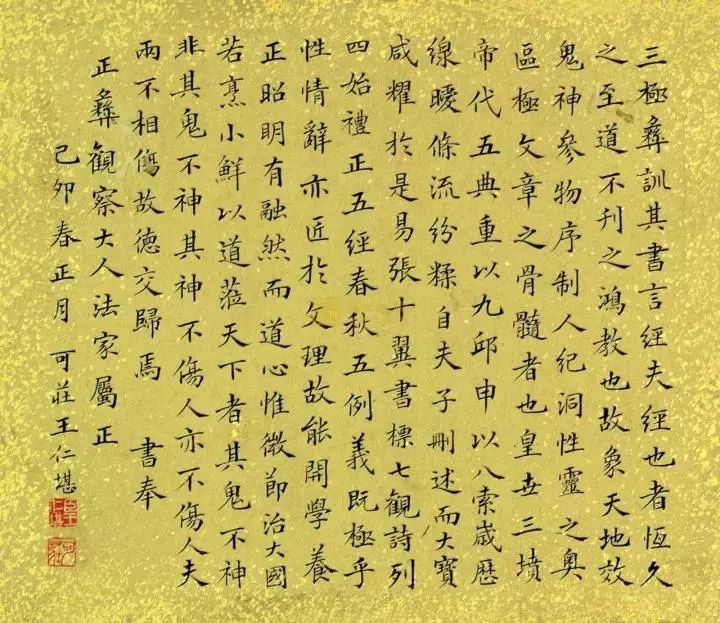 三極彝訓其書言經夫經也者恆久
之至道不刊之鴻教也故象天地效
鬼神參物序制人紀洞性靈之奧
區極文章之骨髓者也皇世三墳
帝代五典重以九邱申以八索歲歷
綿曖條流紛糅自夫子刪述而大寶
咸耀於是易張十翼書標七觀詩列
四始禮正五經春秋五例義既極乎
性情辭亦匠於文理故能開學養
正昭明有融然而道心惟微節治大國
若烹小鮮以道蒞天下者其鬼不神
非其鬼不神其神不傷人亦不傷人夫
兩不相傷故德交歸焉 書奉
正彝觀察大人法家屬正
己卯春正月 可莊王仁堪